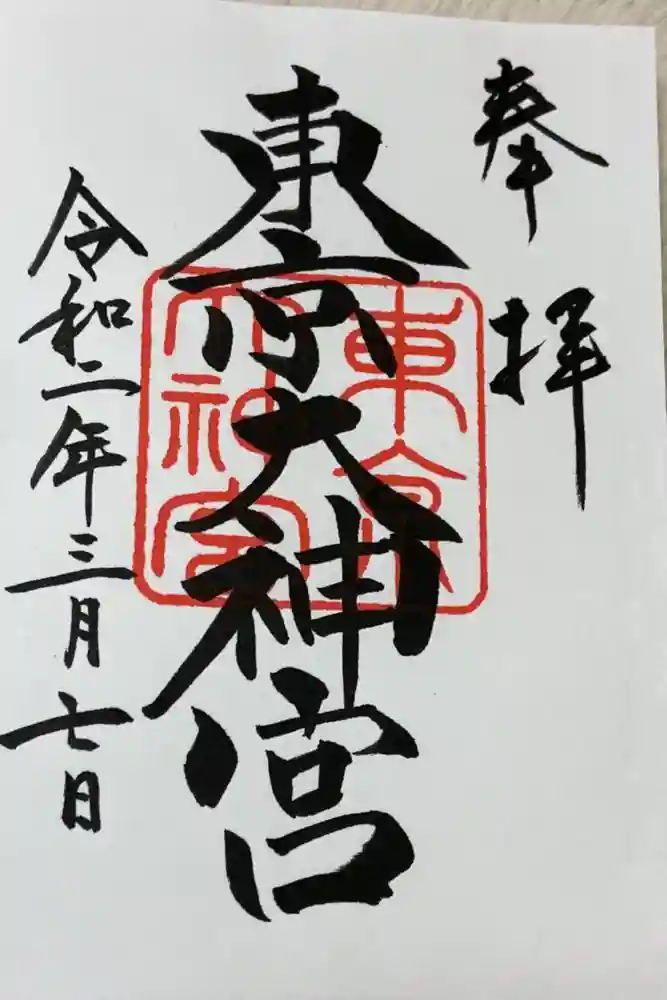 奉拝
東京大神宮
東京大神宮
令和二年三月七日